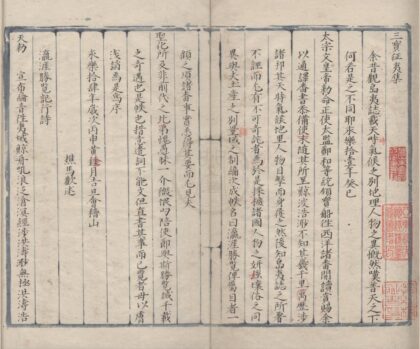 三寶征夷集
余昔觀島夷誌載天時氣候之別地理人物之異慨然嘆普天之下
何若是之不同耶永樂拾壹年癸巳
太宗文皇帝勅命正使太監鄭和等統領寶船往西洋諸番開讀賞賜余
以通譯番書忝備使末隨其所至鯨波浩渺不知其幾千萬里歷涉
諸邦其天時氣候地理人物目擊而身履之然後知島夷誌之所著
不誣而尤有可奇詫者焉於是採摭諸國人物之妍媸壤俗之同
異與夫土產之別疆域之制編次成帙名曰瀛涯勝覽俾屬目者一
顧之頃諸番事實悉得其要而尤見夫
聖化所及非前代之比第愧愚昧一介微氓叨陪使節與斯勝覽誠千載
之奇遇也是帙也措意遣詞不能文但直書其事而已覽者毋以膚
淺誚焉是為序
永樂拾肆年歲次丙申黃鍾月吉旦會稽山
樵馬歡述
瀛涯勝覽紀行詩
天勅
宣布綸音往夷域鯨舟吼浪泛滄溟經涉洪濤渺無極洪濤浩